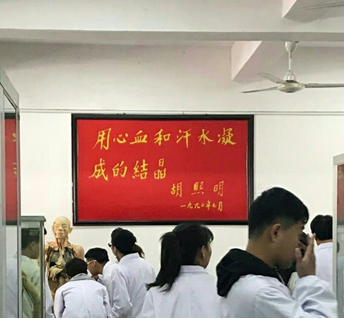 用心血和汗水凝
成的結晶
胡熙明
一九九二年七月